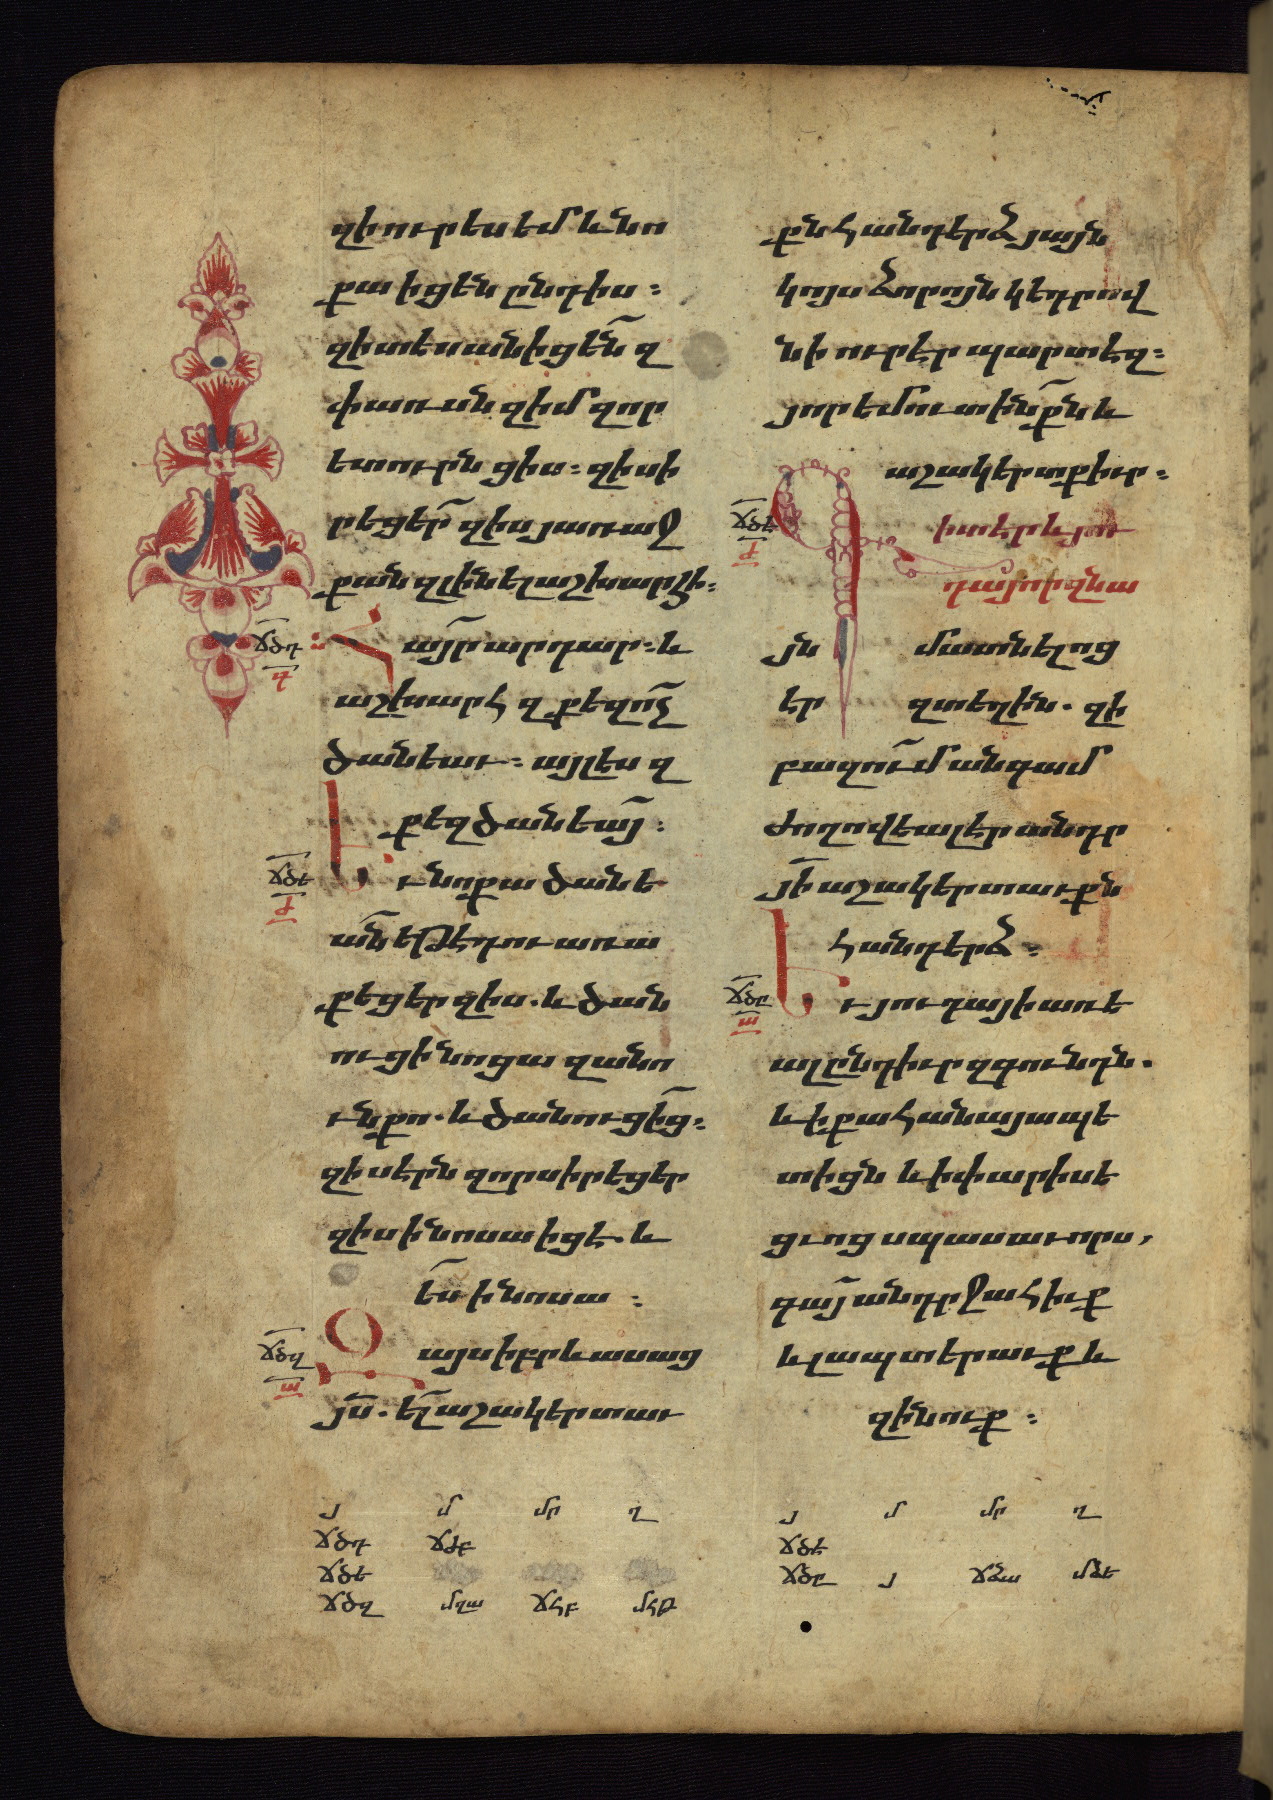 զի ուր ես եմ և նո
քա իցեն ընդ իս։
զի տեսանիցեն զ
փառսն զիմ զոր
ետուրն ցիս։ զի սի
րեցեր զիս յառաջ
քան զլինել աշխարհի։
ճծդ
դ
Հայր արդար։ և
աշխարհ զքեզ ոչ
ծանեաւ։ այլ ես զ
քեզ ծանեայ։
ճծե
ժ
Եւ նոքա ծանե
ան եթե դու առա
քեցեր զիս. և ծան
ուցի նոցա զանո
ւն քո. և ծանուցից։
զի սերն զոր սիրեցեր
զիս ի նոսա իցէ. և
ես ի նոսա։
ճծզ
ա
Զայս իբրև ասաց
յս. ել աշակերտաւ
քն հանդերձ յայն
կոյս ձորոյն կեդրով
նի ուր էր պարտեզ։
յոր եմուտ ինքն և
աշակերտքիւր։
ճծէ
ժ
Գիտէր և յու
դա յոր զնա
յն մատնելոց
էր զտեղին. զի
բազում անգամ
ժողովեալ էր անդր
յի աշակերտաւքն
հանդերձ։
ճծը
ա
Եւ յուդայի առե
ալ ընդ իւր զգունդն.
և ի քահանայապե
տիցն և ի փարիսե
ցւոց սպասաւորս,
գայ անդր ջահիւք
և լապտերաւք և
զինուք։
յ մ մր ղ
ճծդ ճժբ
ճծե
ճծզ մղա ճհբ մհթ
յ մ մր ղ
ճծէ
ճծը յ ճձա մձե